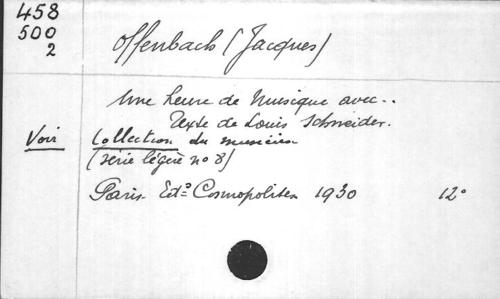 458
500
2
Offenbach (Jacques)
Une heure de Musique avec..
Texte de Louis Schneider.
Voir Collection du musicien
(série légère no 8)
Paris. Edº Cosmopolites 1930 12º